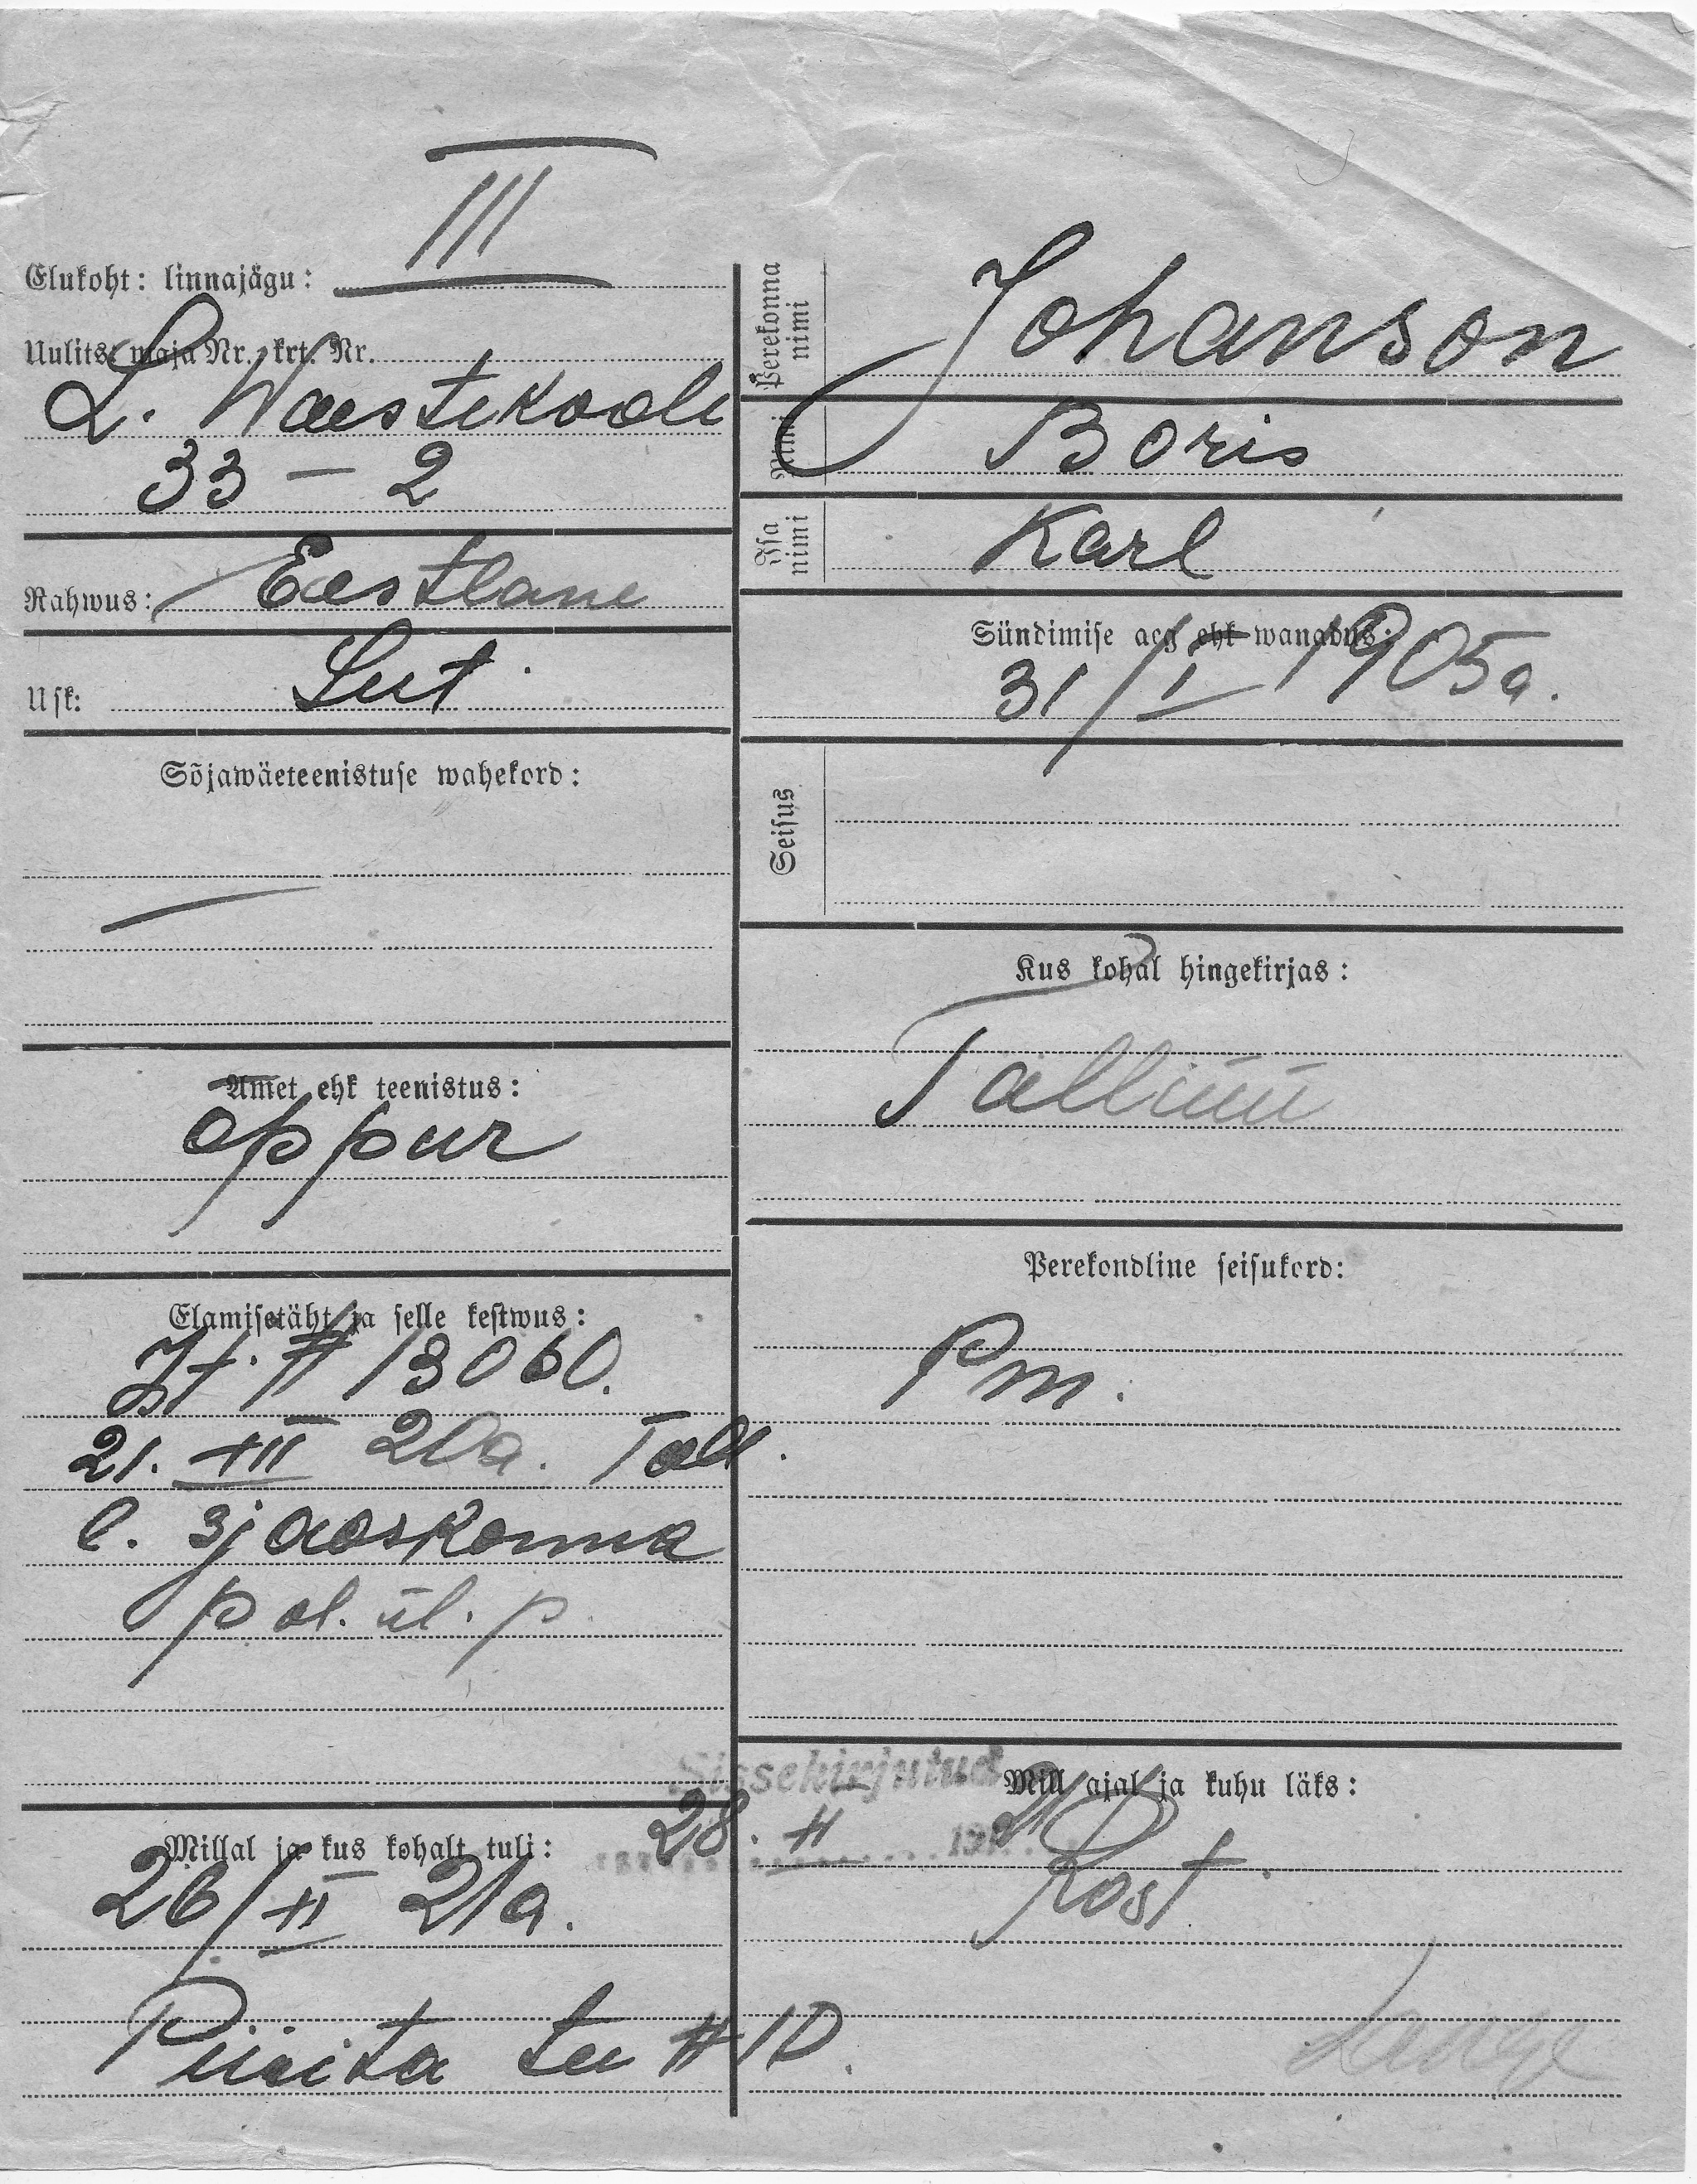 III
Elukoht: linnajagu:
Uulits, maja Nr. krt. Nr.
L. Waestekooli
33 – 2
Rahwus: Eestlane
Usk: Lut.
Sõjawäeteenistuse wahekord:
—
Amet ehk teenistus:
oppur
Elamisetäht ja selle kestwus:
It. # 13060.
21. XII 20a. Tall.
l. 3 jaoskonna
pol. ül. p.
Millal ja kus kohalt tuli:
26/II 21a.
Piirita tee # 10.
Perekonna nimi
Johanson
Nimi
Boris
Isa nimi
Karl
Sündimise aeg ehk wanadus:
31/I 1905a.
Seisus
Kus kohal hingekirjas:
Tallinn
Perekondline seisukord:
Pm.
Sissekirjutud
28. II 192
Mill ajal ja kuhu läks: